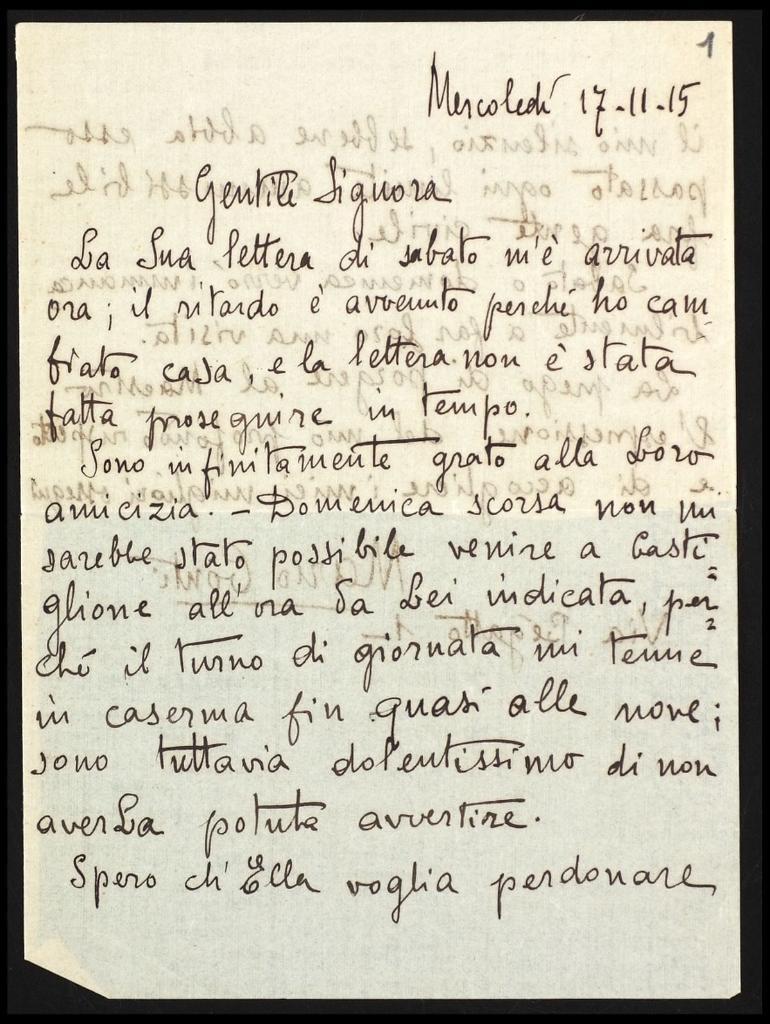 1
Mercoledì 17-11-15
Gentile Signora
La Sua lettera di sabato m'è arrivata
ora; il ritardo è avvenuto perché ho cam-
biato casa, e la lettera non è stata
fatta proseguire in tempo.
Sono infinitamente grato alla Loro
amicizia. – Domenica scorsa non mi
sarebbe stato possibile venire a Casti=
glione all'ora da Lei indicata, per=
ché il turno di giornata mi tenne
in caserma fin quasi alle nove;
sono tuttavia dolentissimo di non
averLa potuta avvertire.
Spero ch'Ella voglia perdonare